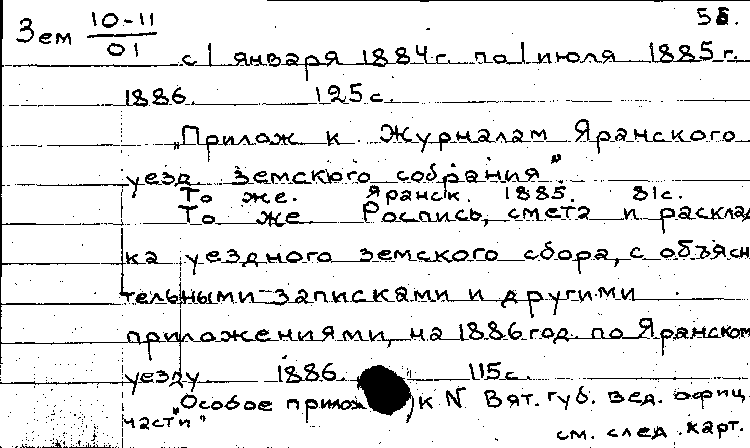 Зем 10-11/01 55.
с 1 января 1884г. по 1 июля 1885г.
1886. 125с.
„Прилож к Журналам Яранского
уезд земского собрания"
То же. Яранск. 1885. 81с.
То же. Роспись, смета и расклад
ка уездного земского сбора, с объясн
тельными записками и другими
приложениями, на 1886 год по Яранском
уезду 1886. 115с.
"Особое прилож к N Вят. губ. вед. офиц.
части"
см. след. карт.